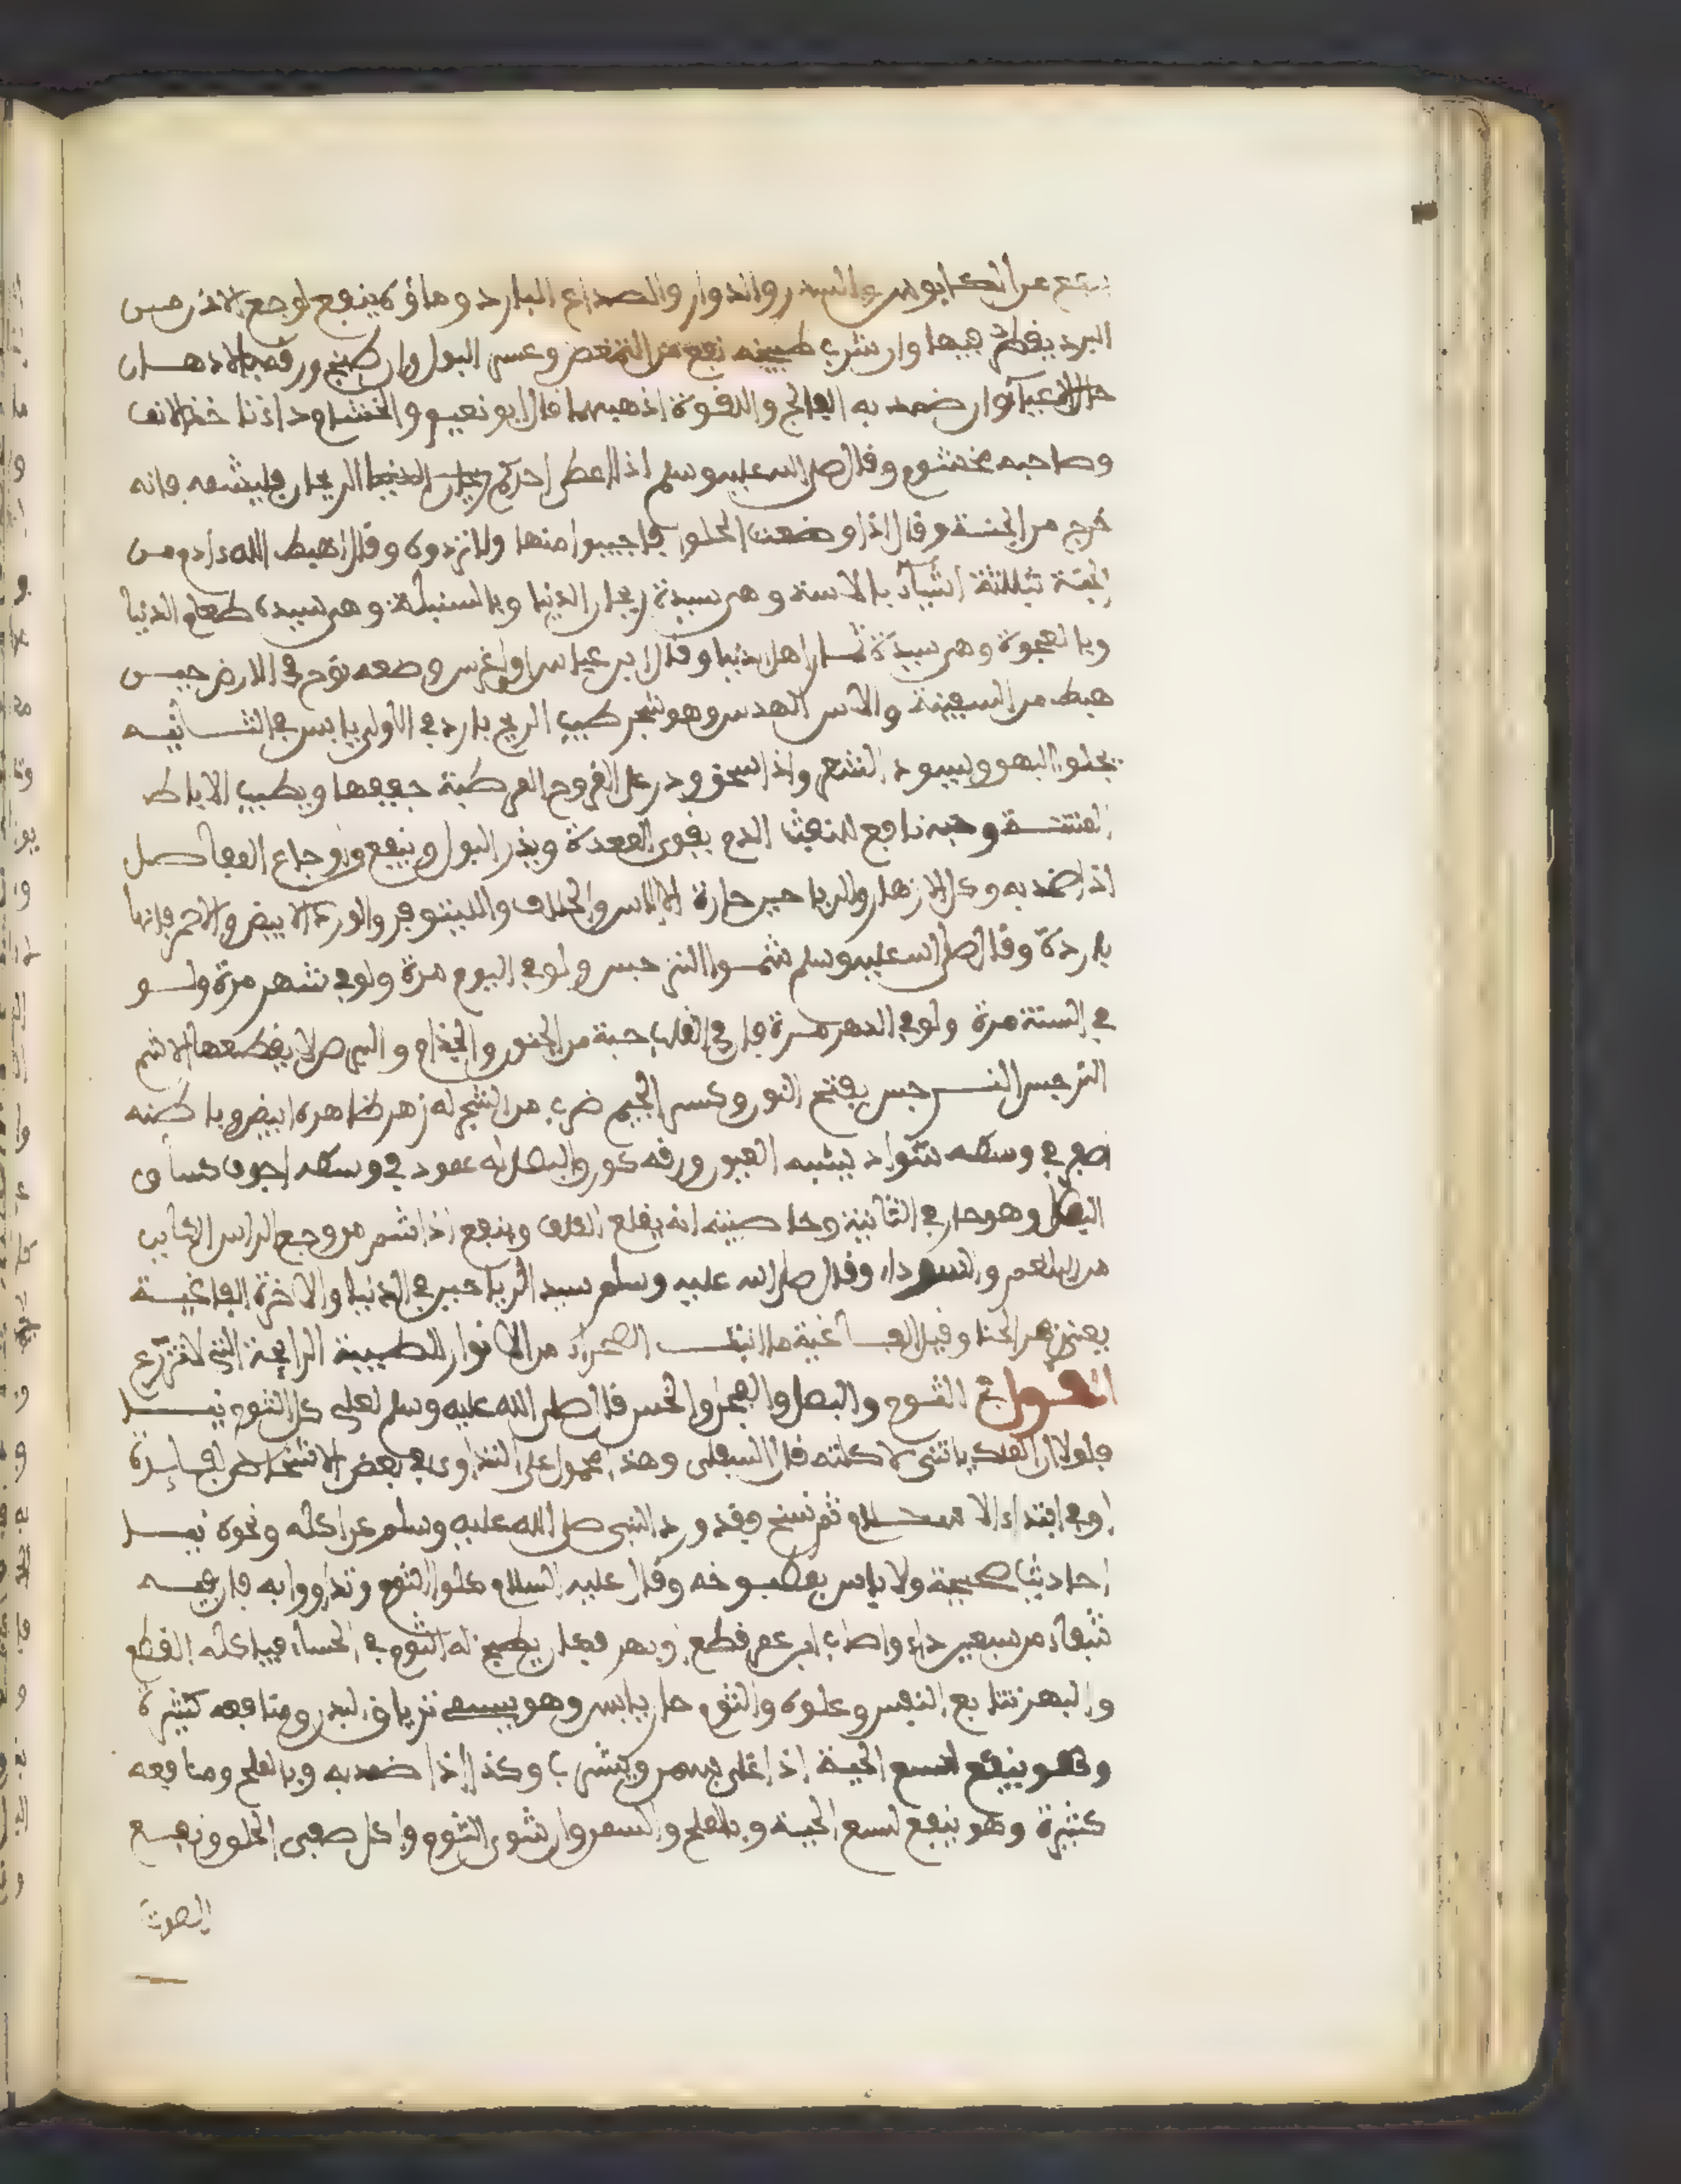 ينفع من الكابوس والسدر والدوار والصداع البارد وماؤه ينفع لوجع الاذن من
البرد يقطر فيها وان شرب طبيخه نفع من التمغص وعسر البول وان طبخ ورقه بالادهان
حلل الاعياء وان ضمد به الفالج واللقوة اذهبهما قال ابو نعيم والخشام داء ياخذ الانف
وصاحبه مخشوم وقال صلى الله عليه وسلم اذا اعطي احدكم الريحان فليشمه فانه
خرج من الجنة وقال اذا وضعت الحلوا فاجيبوا منها ولا تردوه وقال اهبط الله ءادم من
الجنة بثلاثة اشياء بالاسة وهي سيدة ريحان الدنيا وبالسنبلة وهي سيدة طعام الدنيا
وبالعجوة وهي سيدة ثمار اهل الدنيا وقال ابن عباس اول غرس وضعه نوح في الارض حين
هبط من السفينة والاس الهدس وهو شجر طيب الريح بارد في الاولى يابس في الثانيه
يجلو البهق ويسود الشعر واذا سحق وذر على القروح الرطبة جففها ويطيب الاباط
المنتنة وحبه نافع لنفث الدم يقوي المعدة ويذر البول وينفع اوجاع المفاصل
اذا ضمد به وكل الازهار والرياحين حارة الا الاس والخلاف واللينوفر والورد الابيض والاحمر فانها
باردة وقال صلى الله عليه وسلم شموا النرجس ولو في اليوم مرة ولو في شهر مرة ولو
في السنة مرة ولو في الدهر مرة فان في القلب حبة من الجنون والجذام والبرص لا يقطعها الا شم
النرجس النرجس بفتح النون وكسر الجيم ضرب من الشجر له زهر ظاهره ابيض وباطنه
اصفر في وسطه سواد يشبه العيون ورقه كورق البصل له عمود في وسطه اجوف كساق
البصل وهو حار في الثانية وخاصيته انه يقلع الكلف وينفع اذا شم من وجع الراس الكاين
من البلغم والسوداء وقال صلى الله عليه وسلم سيد الرياحين في الدنيا والاخرة الفاغية
يعني زهر الحنا وقيل الفاغية ما انبتت الصحراء من الانوار الطيبة الرايحة التي لا تزرع
القول في الثوم والبصل والفجل والخس قال صلى الله عليه وسلم لعلي كل الثوم نيا
فلولا ان الملك ياتيني لاكلته قال السيفلي وهذا محمول على التداوي في بعض الاشخاص لفايدة
او في ابتداء الاسلام ثم نسخ وقد ورد النهي صلى الله عليه وسلم عن اكله ونحوه نيا
احاديث صحيحة ولا باس بمطبوخه وقال عليه السلام كلوا الثوم وتداووا به فان فيه
شفاء من سبعين داء واصاب ابن عمر قطع وبهر فكان يطبخ له الثوم في الحساء فياكله القطع
والبهر تتابع النفس وعلوه والثوم حار يابس وهو يسمى ترياق البدر ومنافعه كثيرة
وهو ينفع لسع الحية اذا غلي بسمن ويشرب وكذا اذا ضمد به وبالملح ومنافعه
كثيرة وهو ينفع لسع الحية وبالملح والسمن وان شوي الثوم واكل صفى الحلق ونفع
الصوت